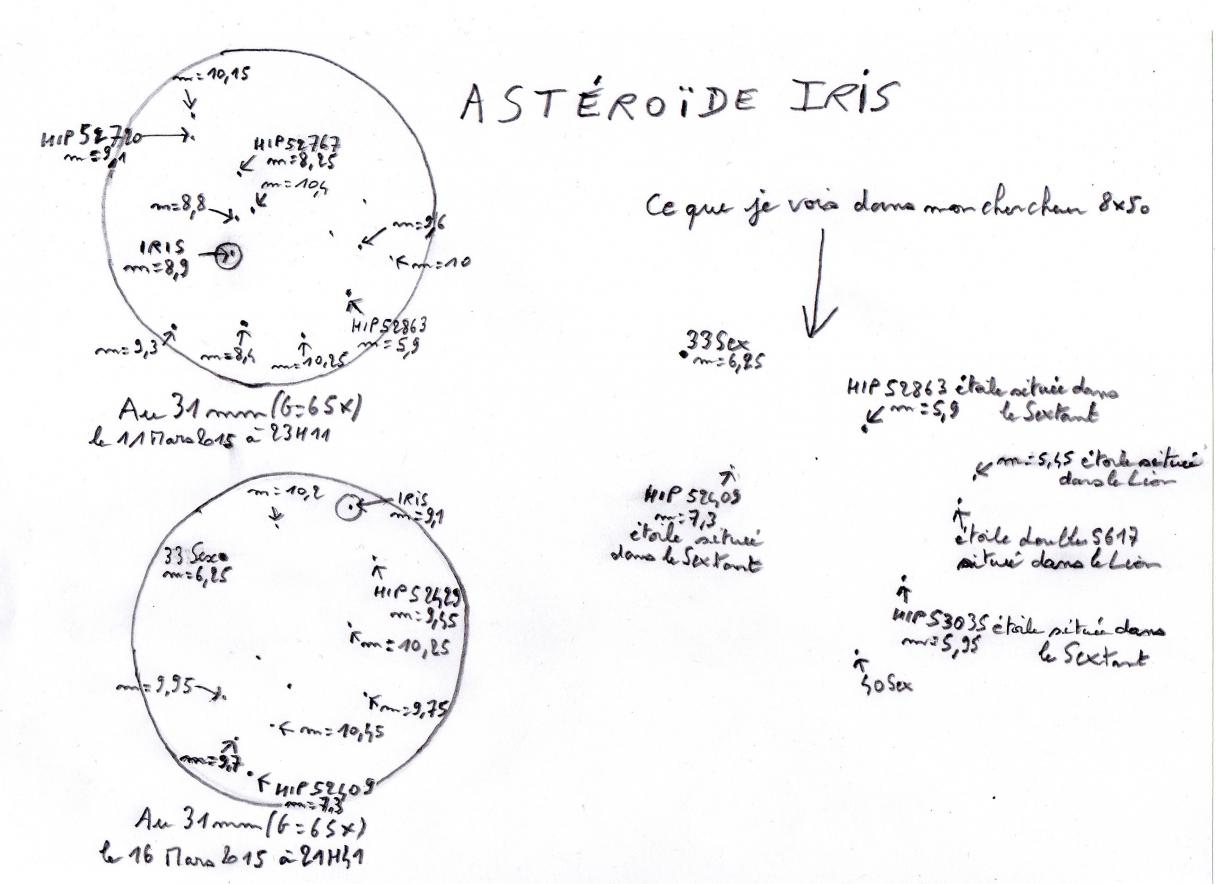 ASTÉROÏDE IRIS
m=10,15
HIP 52720
m=9,1
HIP 52767
m=8,25
m=10,4
m=8,8
m=9,6
IRIS
m=8,9
m=10
HIP 52863
m=5,9
m=9,3
m=8,4
m=10,25
Au 31mm (G=65x)
le 11 Mars 2015 à 23H11
m=10,2
IRIS
m=9,1
33 Sex
m=6,25
HIP 52429
m=9,45
m=10,25
m=9,95
m=9,75
m=10,45
m=9,7
HIP 52409
m=7,3
Au 31mm (G=65x)
le 16 Mars 2015 à 21H41
Ce que je vois dans mon chercheur 8x50
33 Sex
m=6,25
HIP 52863 étoile située dans
m=5,9 le Sextant
m=5,45 étoile située
dans le Lion
HIP 52409
m=7,3
étoile située
dans le Sextant
étoile double S617
située dans le Lion
HIP 53035 étoile située dans
m=5,95 le Sextant
40 Sex